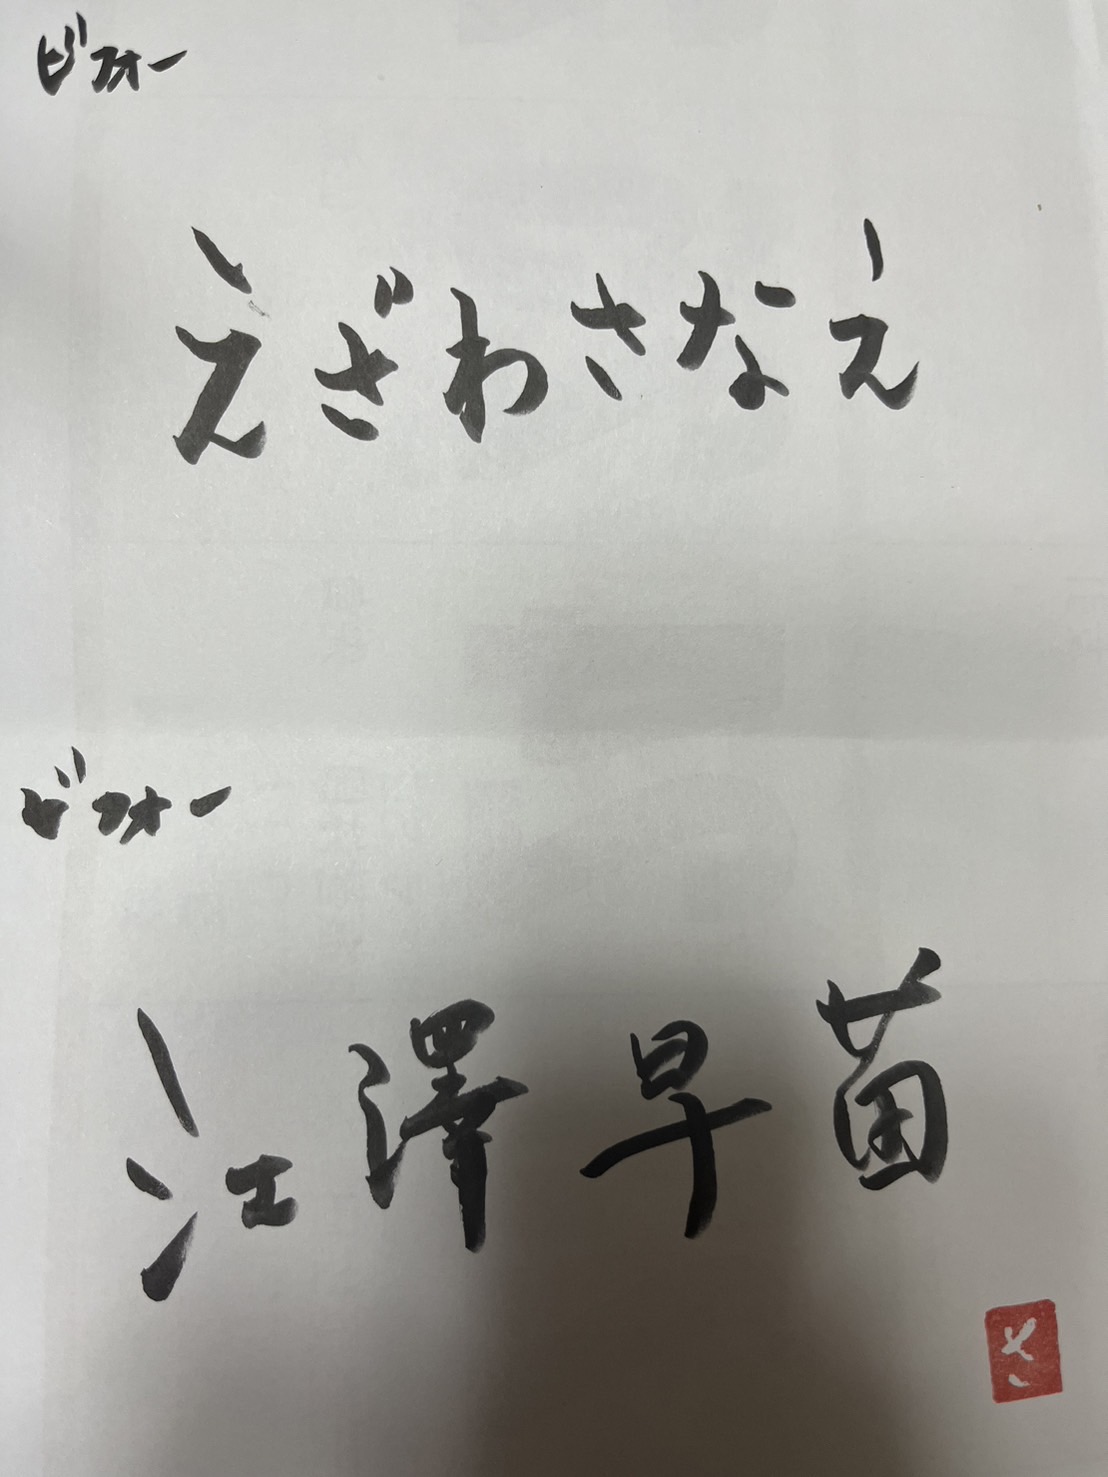 ビフォー
えざわさなえ
ビフォー
江澤早苗
さ